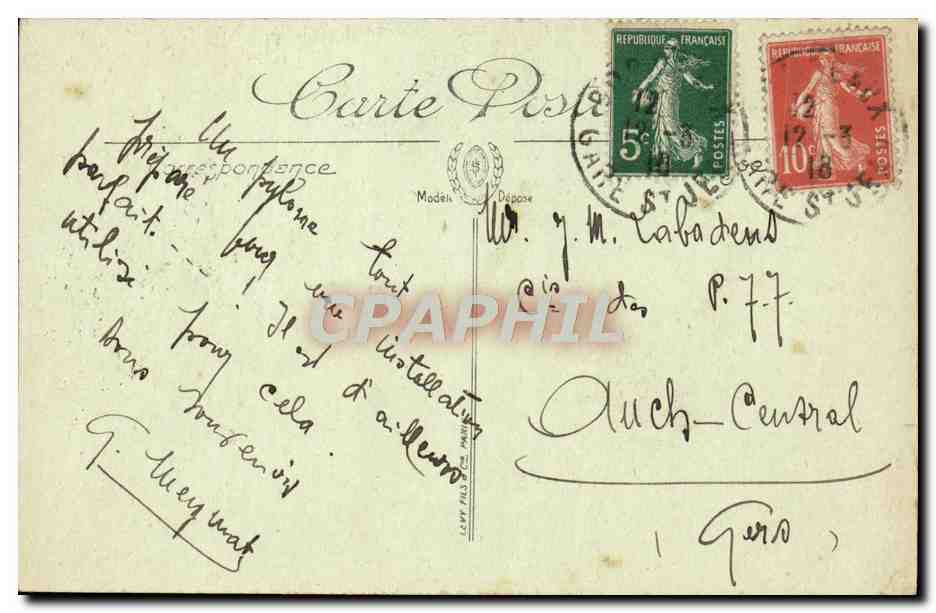 Carte Posta
Correspondance
Modèle Déposé
RÉPUBLIQUE FRANÇAISE
5c
POSTES
RÉPUBLIQUE FRANÇAISE
10c
POSTES
12
12-3
18
GARE ST JE
12
12-3
18
GARE ST JE
Un pylone tout installation
préparé pour une d'ailleurs
parfait. - Il est
utilisé pour cela
bons souvenirs
G. Meymat
Mr. J. M. Labadens
Cis des P.T.T.
Auch-Central
(Gers)
LEVY FILS & Cie PARIS
CPAPHIL